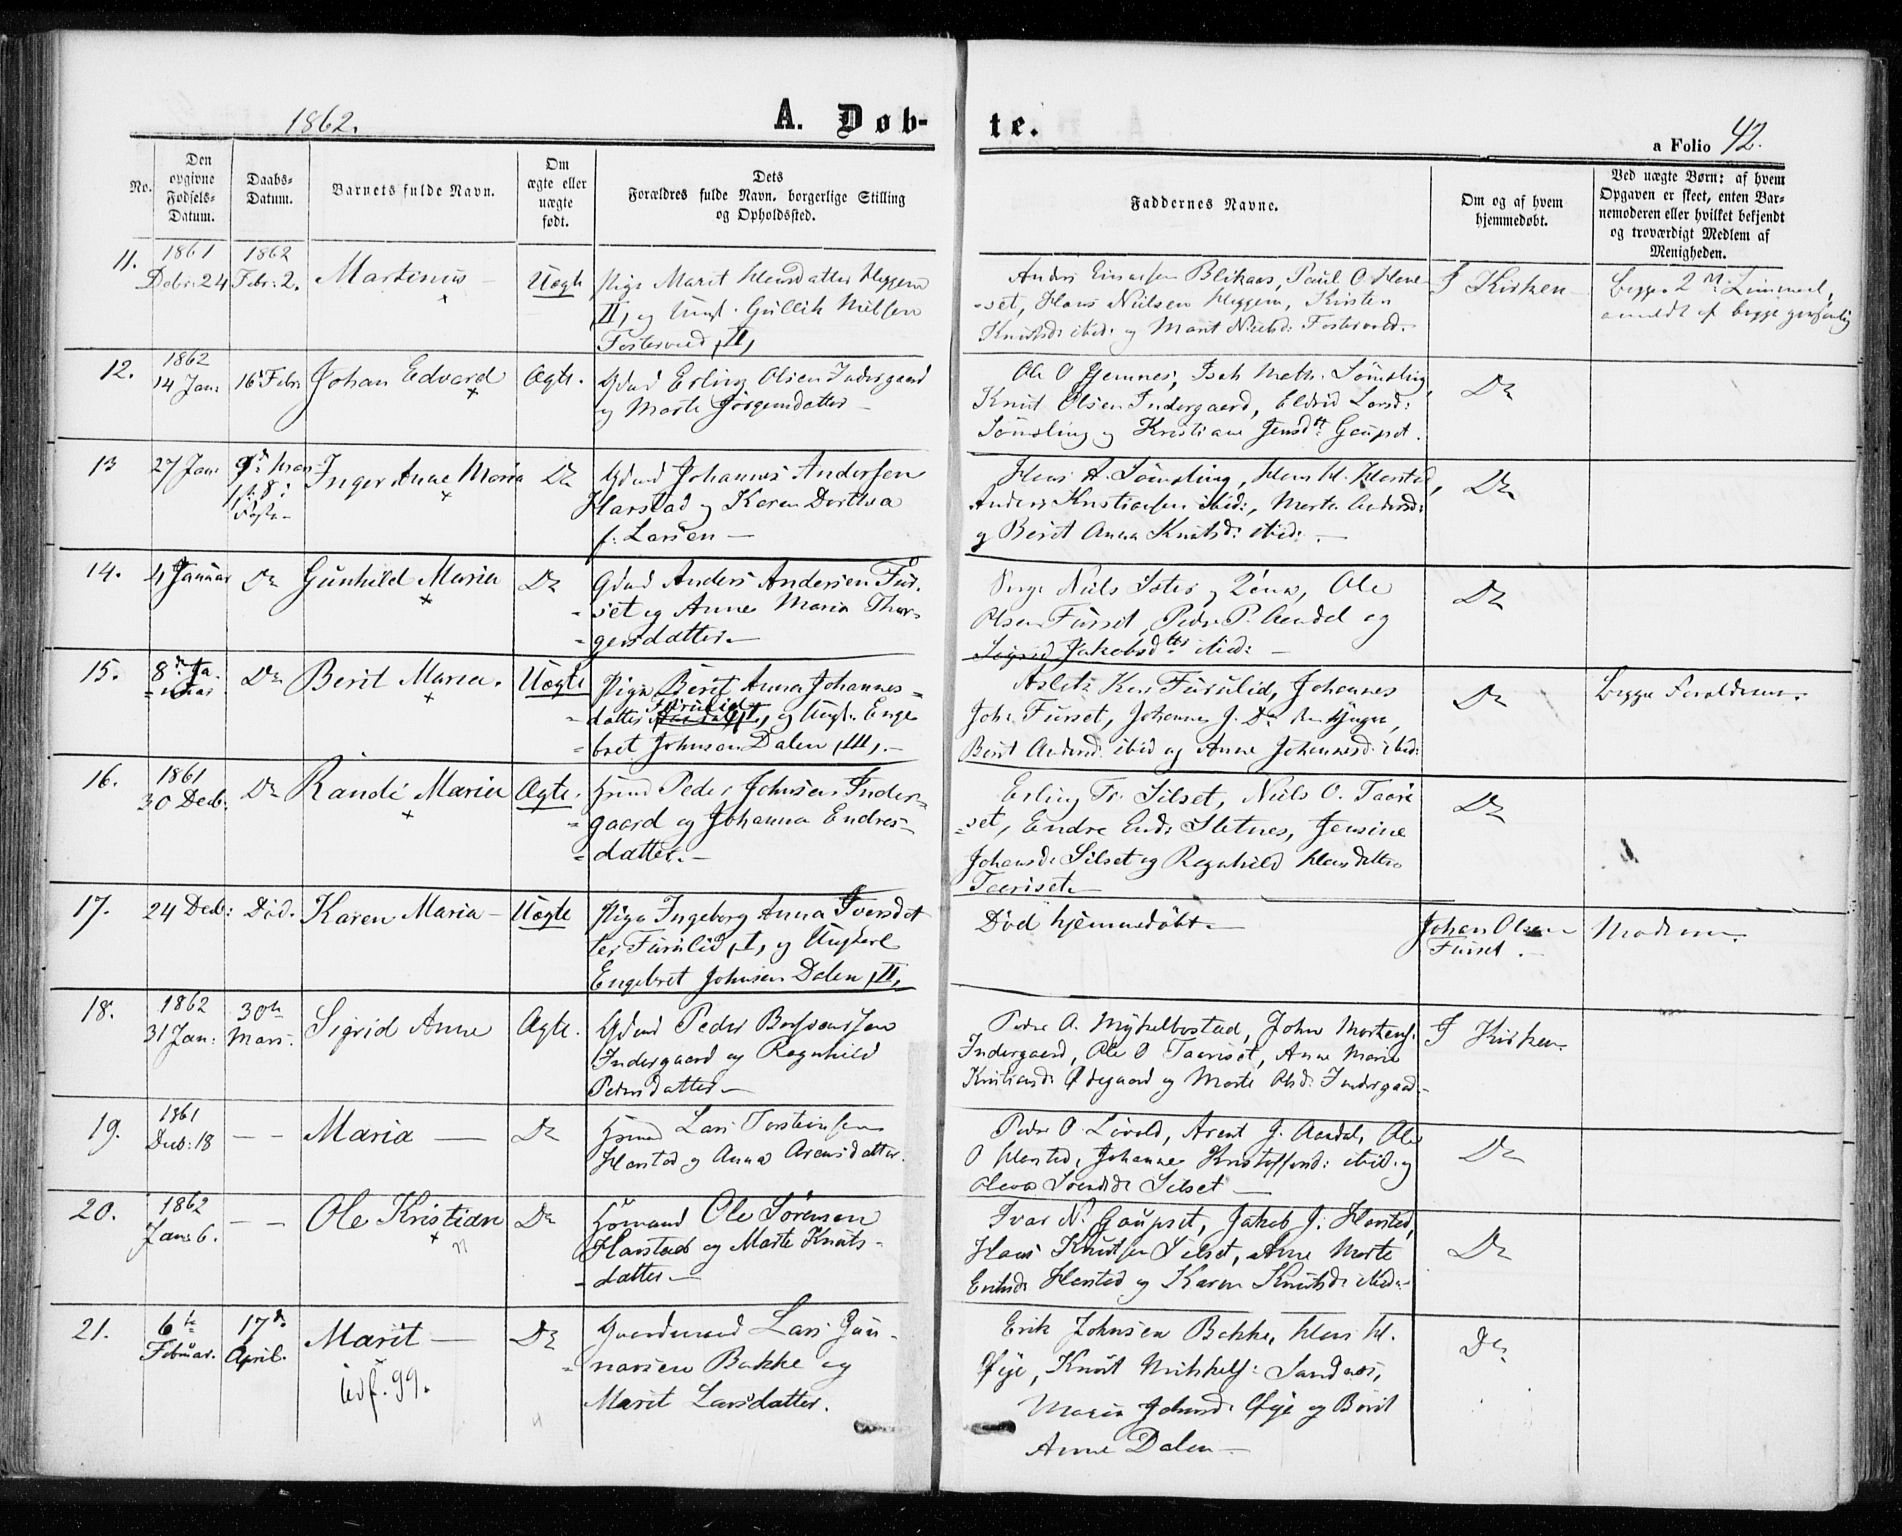 1862.
A. Døb-
te.
a Folio 42.
No.
Den opgivne Fødsels-Datum.
Daabs-Datum.
Barnets fulde Navn.
Om ægte eller uægte født.
Dets
Forældres fulde Navn, borgerlige Stilling
og Opholdssted.
Faddernes Navne.
Om og af hvem
hjemmedøbt.
Ved uægte Børn: af hvem
Opgaven er skeet, enten Bar-
nemoderen eller hvilket bekjendt
og troværdigt Medlem af
Menigheden.
11.
1861
Decbr: 24
1862
Febr: 2.
Martinus
Uægte
Pige Marit Hansdatter Heggem
II, og Ungk. Gullik Nilsen
Fostervold, II,
Anders Einarsen Blikaas, Paul O.
set, Hans Nielsen Heggem, Kirsten
Knutsd: ibid: og Marit Nielsd: Fostervold.
I Kirken
Begge
anmeldt af begge
12.
1862
14 Jan:
16 Febr:
Johan Edvard
Ægte.
Gbmd Erling Olsen Indergaard
og Marte Jørgensdatter
Ole O Gjemnes, Isak Meth: Sømsling,
Knut Olsen Indergaard, Eldrid Larsd:
Sømsling og Kristiane Jensdtr Gaupset.
Do
13
27 Jan:
9de Mars
1ste S. i
Faste
Inger Anne Maria
Do
Gbmd Johannes Andersen
Harstad og Karen Dorthea
f. Larsen
Hans A. Sømsling, Hans H. Harstad,
Anders Kristiansen ibid:, Marte Andersd:
og Berit Anna Knutsd: ibid:
Do
14.
4 Januar
Do
Gunhild Maria
Do
Gbmd Anders Andersen Fur-
set og Anne Maria Thor-
gersdatter
Niels Ister og Kona, Ole
Olsen Furset, Peder P. Aandal og
Sigrid Jakobsdtter ibid:
Do
15.
8de Ja-
nuar
Do
Berit Maria.
Uægte
Pige Berit Anna Johannes-
datter Furulid I, og Ungk. Enge-
bret Johnsen Dalen, III,
Aslak Furulid, Johannes
Joh: Furset, Johannes J. Do den Yngre,
Berit Andersd: ibid og Anne Johannesd: ibid:
Do
Begge Forældrene.
16.
1861
30 Decb.
Do
Randi Maria
Ægte.
Hsmd Peder Johnsen Inder-
gaard og Johanna Endres-
datter.
Erling Tr: Silset, Niels O. Taari
set, Endre Ends: Sletnes, Jensine
Johansd: Silset og Ragnhild Hansdatter
Taariset.
Do
17.
24 Decb:
Død.
Karen Maria
Uægte
Pige Ingeborg Anna Iversdat
ter Furulid, I, og Ungkarl
Engebret Johnsen Dalen, II,
Død hjemmedøbt.
Johan Olsen
Furset.
Moderen.
18.
1862
31 Jan:
30te
Mars.
Sigrid Anne
Ægte.
Gbmd Peder
Indergaard og Ragnhild
Pedersdatter
Peder A. Myklebostad, John Mortens:
Indergaard, Ole O Taariset, Anne Marie
Kristiansd: Ødegaard og Marte Olsd: Indergaard.
I Kirken.
19.
1861
Decb: 18
Maria
Do
Hsmd Lars Torsteinsen
Harstad og Anna Arensdatter.
Peder O Løvold, Arent J. Aandal, Ole
O Harstad, Johanne Kristoffersd: ibid: og
Silset
Do
20.
1862
Jan: 6.
Ole Kristian
Do
Hsmand Ole Sørensen
Harstad og Marte Knuts-
datter
Ivar N. Gaupset, Jakob J. Harstad,
Hans Knutsen Silset, Anne Marte
Eriksd: Harstad og Karen Knutsd: ibid:
Do
21.
6te
Februar.
17de
April.
Marit
Udf. 99.
Do
Gaardmand Lars Gun-
narsen Bakke og
Marit Larsdatter.
Erik Johnsen Bakke, Hans H.
Øye, Knut Mikkels: Sandnes,
Maria Johnsd: Øye og Berit
Anne Dalen
Do